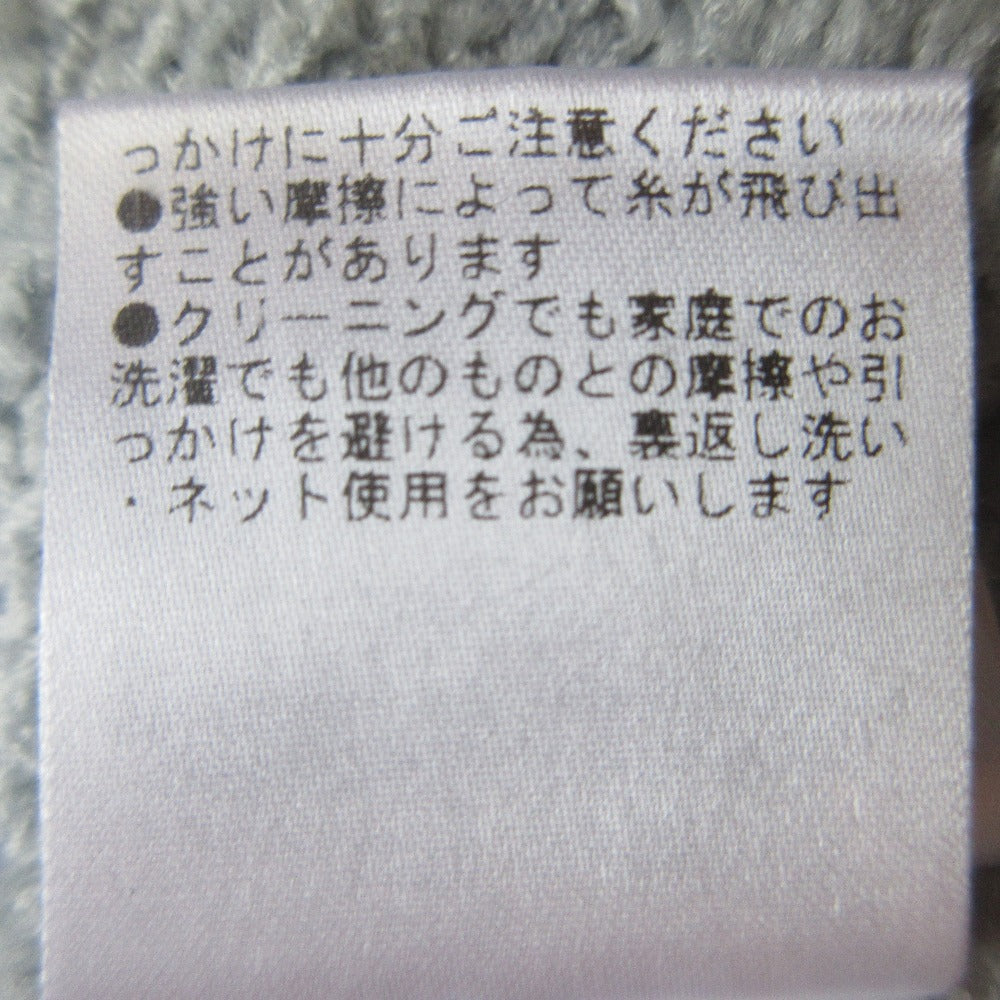 っかけに十分ご注意ください
●強い摩擦によって糸が飛び出
すことがあります
●クリーニングでも家庭でのお
洗濯でも他のものとの摩擦や引
っかけを避ける為、裏返し洗い
・ネット使用をお願いします